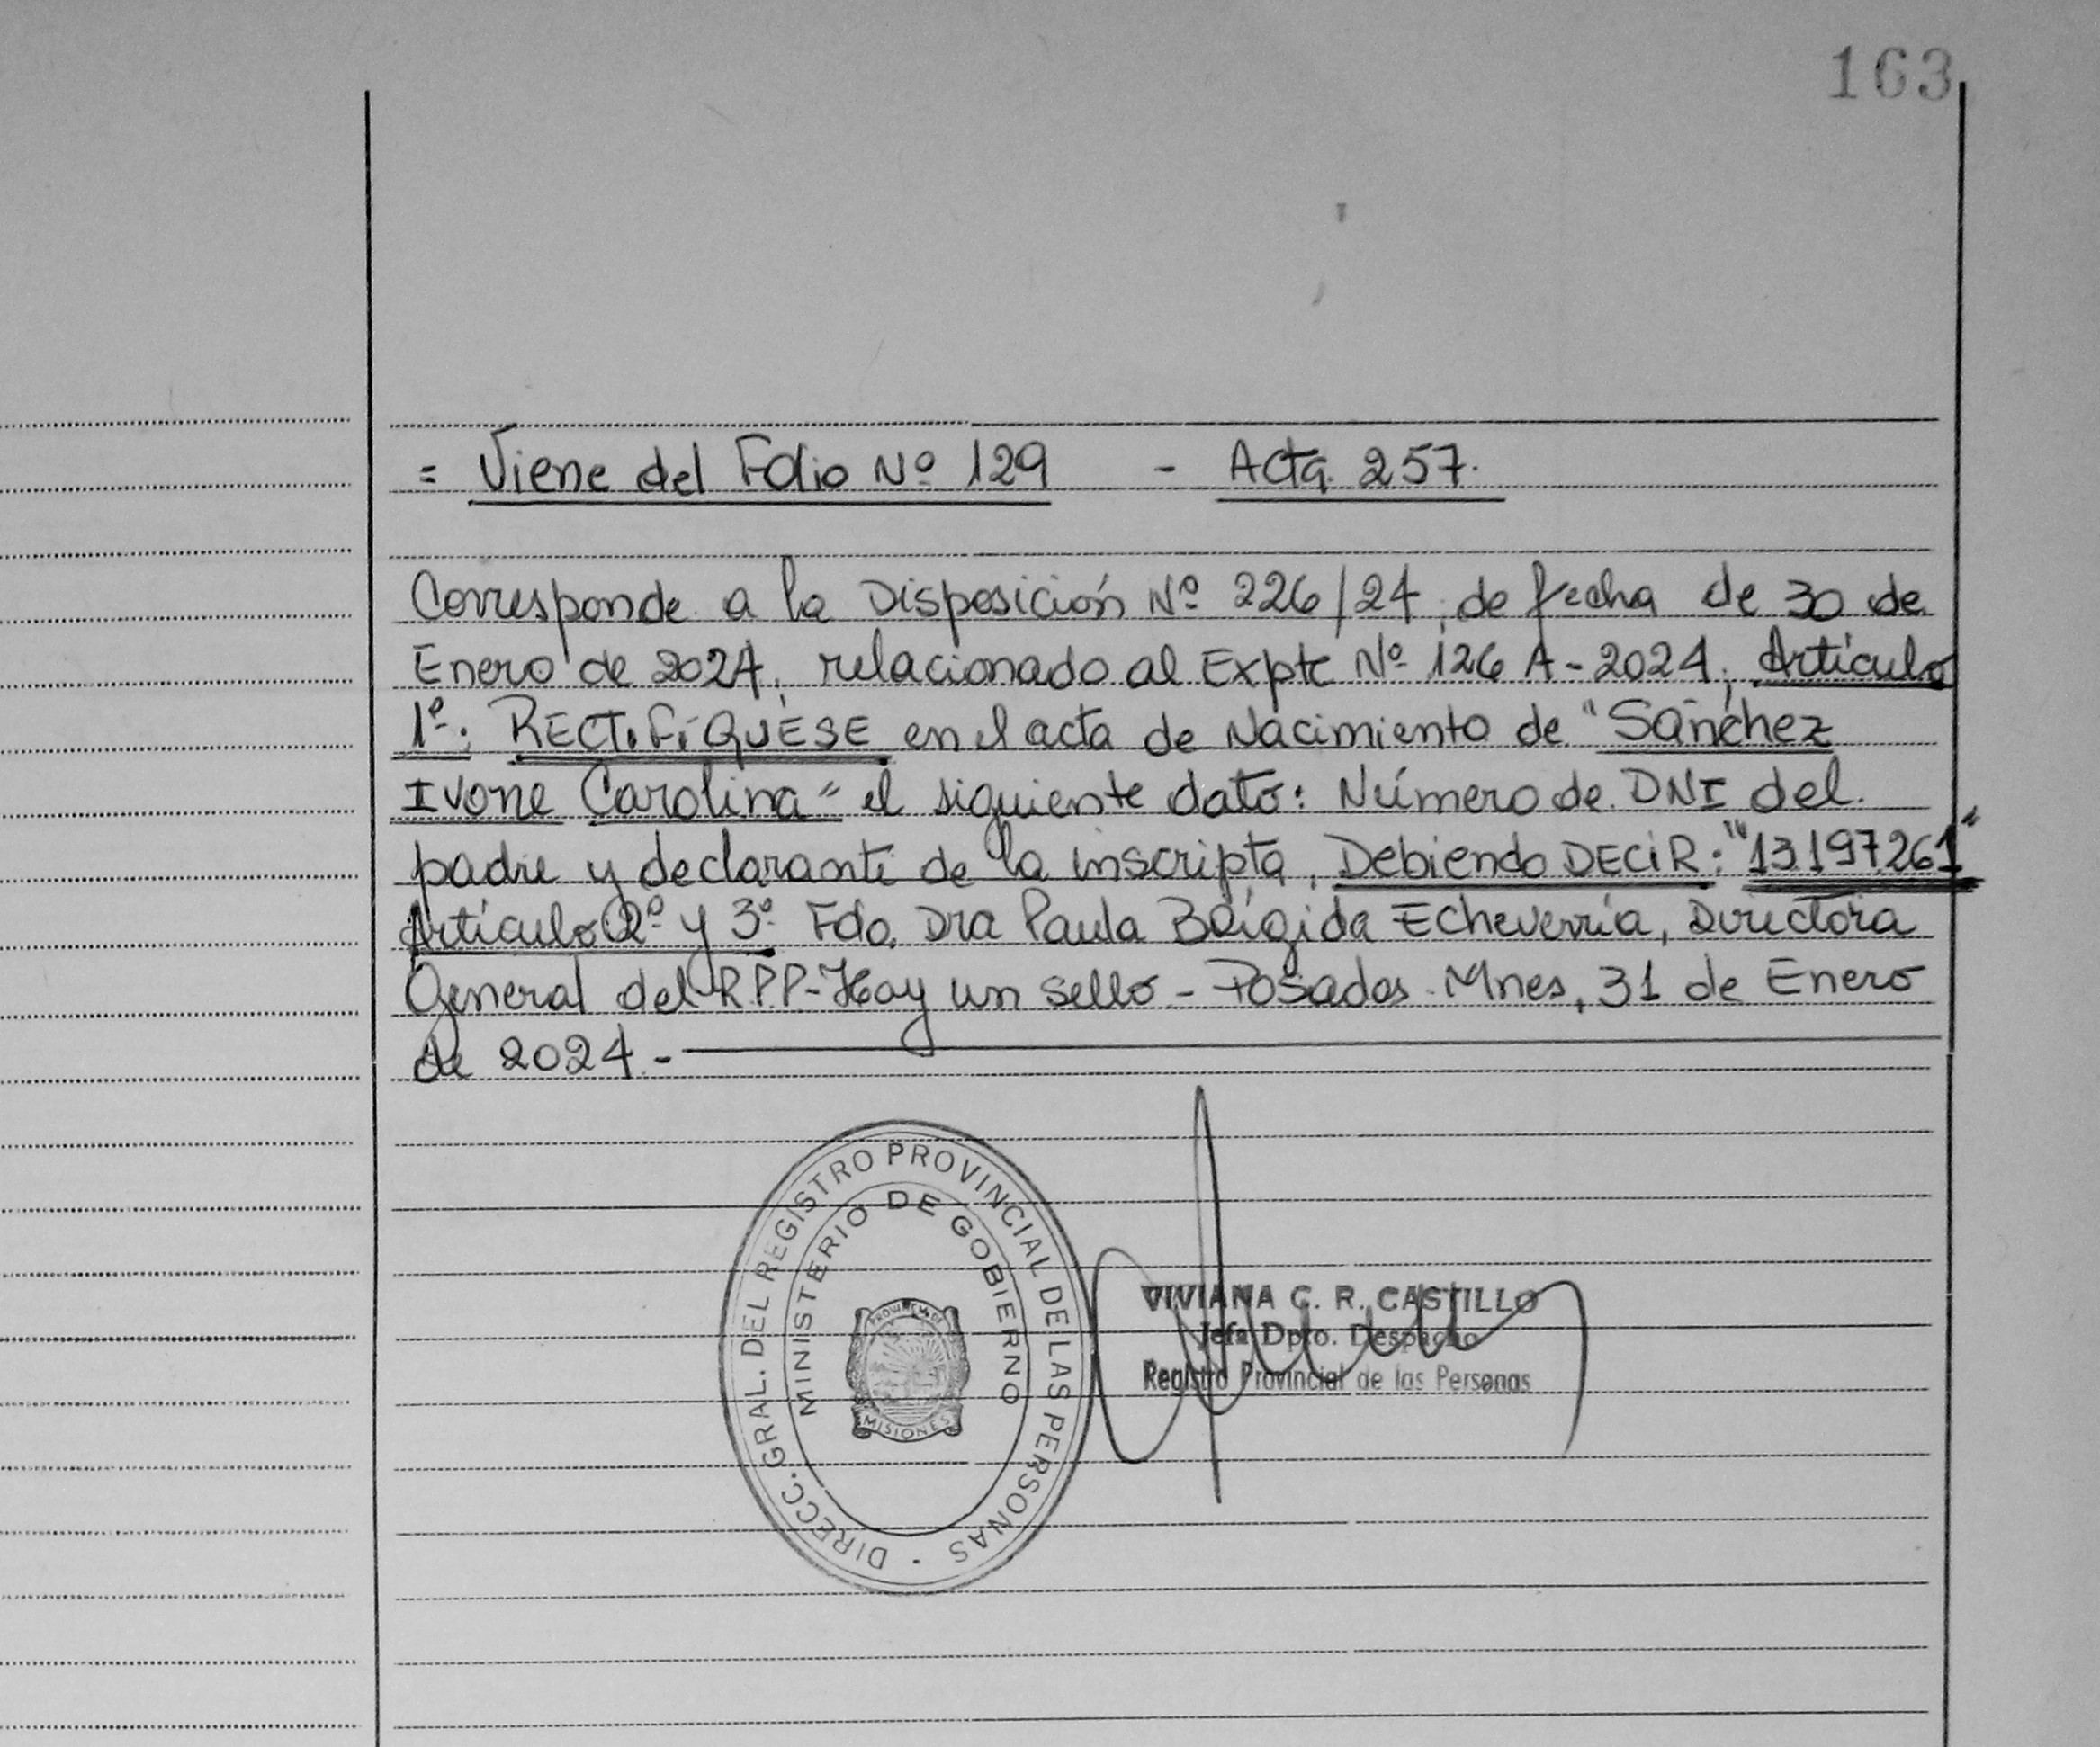 163
= Viene del Folio Nº 129 - Acta 257.
Corresponde a la Disposición Nº 226/24, de fecha de 30 de
Enero de 2024, relacionado al Expte Nº 126 A-2024, Artículo
1º: RECTiFíQUESE en el acta de Nacimiento de "Sánchez
Ivone Carolina" el siguiente dato: Número de DNI del
padre y declarante de la inscripta, Debiendo DECiR: "13.197.261"
Artículo 2º y 3º Fdo, Dra Paula Brígida Echeverría, Directora
General del R.P.P-Hay un sello - Posadas Mnes, 31 de Enero
de 2024.-
DIRECC. GRAL. DEL REGISTRO PROVINCIAL DE LAS PERSONAS
MINISTERIO DE GOBIERNO
PROVINCIA DE
MISIONES
VIVIANA C. R. CASTILLO
Jefa Dpto. Despacho
Registro Provincial de las Personas